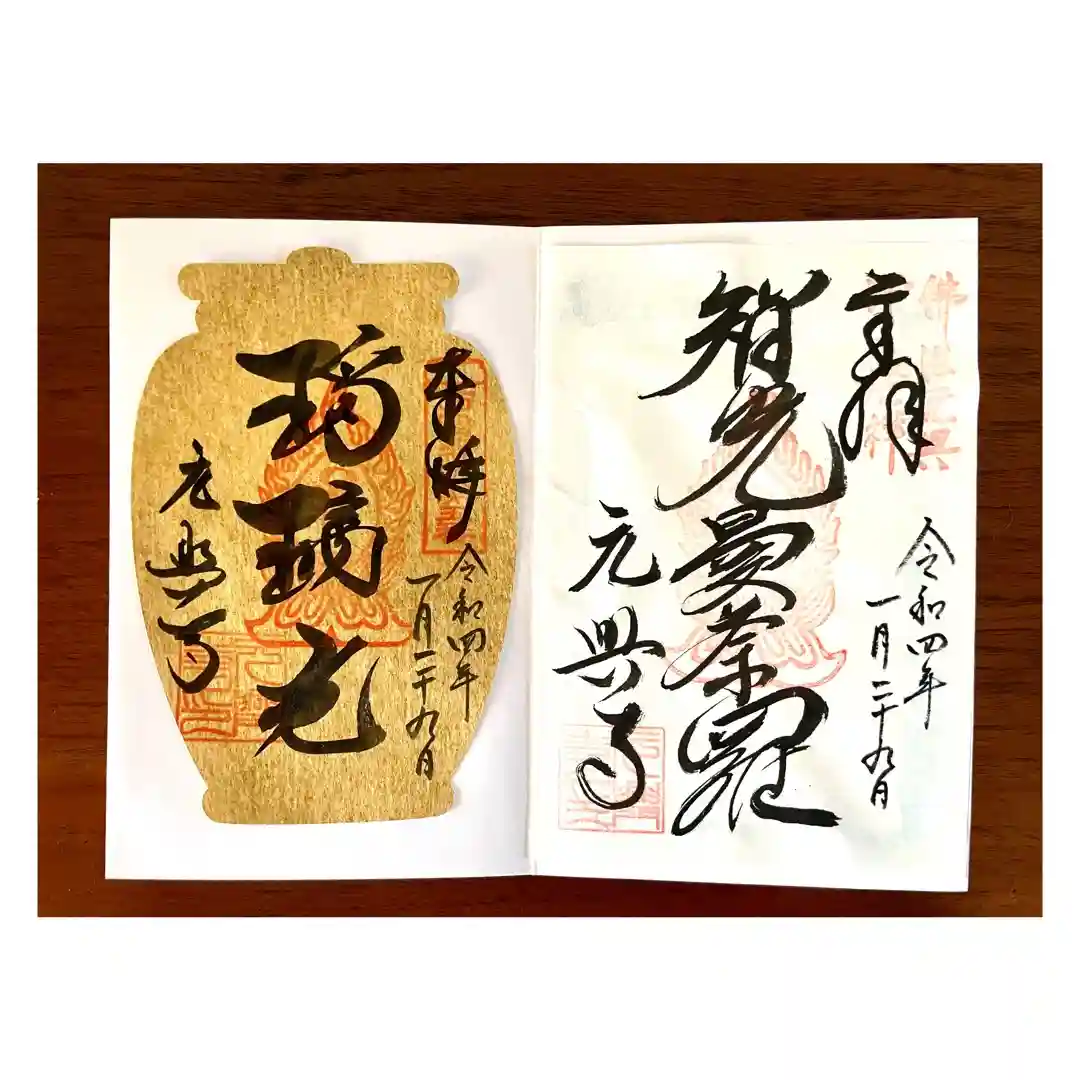 奉拝
智光曼荼羅
令和四年
一月二十九日
元興寺
奉拝
瑠璃光
令和四年
一月二十九日
元興寺